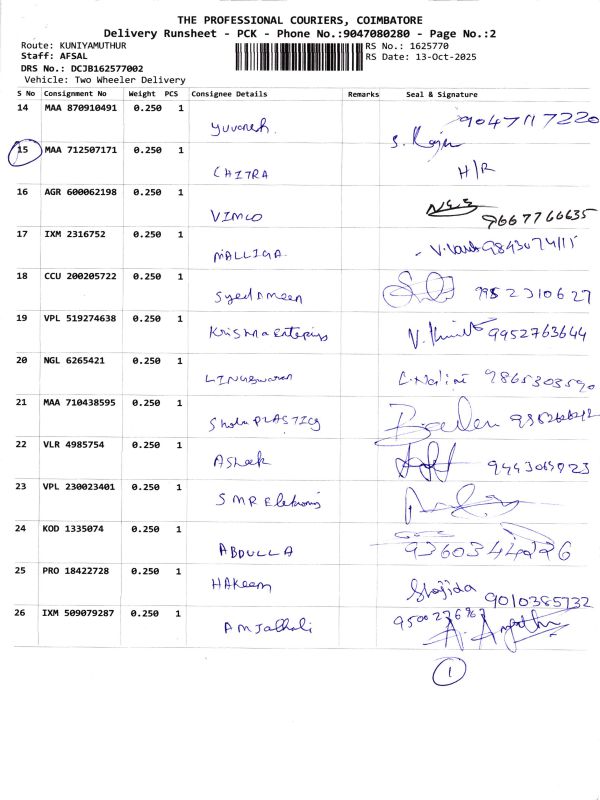 THE PROFESSIONAL COURIERS, COIMBATORE
Delivery Runsheet - PCK - Phone No.:9047080280 - Page No.:2
Route: KUNIYAMUTHUR RS No.: 1625770
Staff: AFSAL RS Date: 13-Oct-2025
DRS No.: DCJB162577002
Vehicle: Two Wheeler Delivery
S No Consignment No Weight PCS Consignee Details Remarks Seal & Signature
14 MAA 870910491 0.250 1
yuvanesh. 9047117220
15 MAA 712507171 0.250 1
CHITRA H/R
16 AGR 600062198 0.250 1
VIMCO 9667766635
17 IXM 2316752 0.250 1
MALLIGA.
18 CCU 200205722 0.250 1
Syed Ameen 9952310627
19 VPL 519274638 0.250 1
Krishna 9952763644
20 NGL 6265421 0.250 1
LINGESWARAN C.Nalini 9865303590
21 MAA 710438595 0.250 1
PLASTICS
22 VLR 4985754 0.250 1
AShok
23 VPL 230023401 0.250 1
SMR
24 KOD 1335074 0.250 1
ABDULLA
25 PRO 18422728 0.250 1
HAKeem Shajida 9010385732
26 IXM 509079287 0.250 1
AMJathali
1